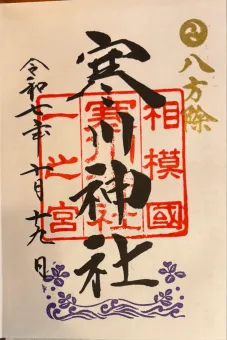 八方除
相模國
寒川神社
一之宮
寒川神社
令和七年 十一月 十九日